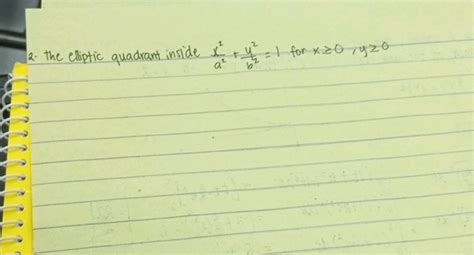 2. The elliptic quadrant inside x²/a² + y²/b² = 1 for x ≥ 0, y ≥ 0